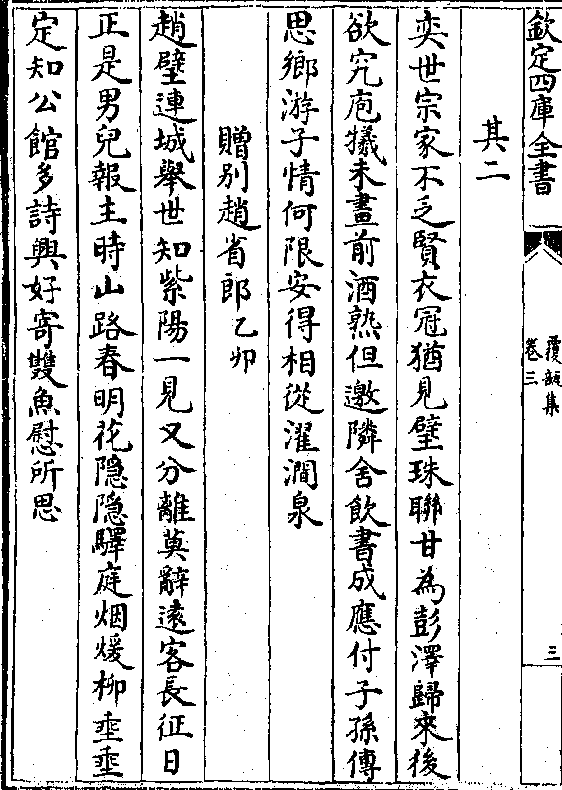 欽定四庫全書
覆瓿集
卷三
三
其二
奕世宗家不乏賢衣冠猶見璧珠聯甘為彭澤歸來後
欲究庖犧未畫前酒熟但邀隣舍飲書成應付子孫傳
思鄉游子情何限安得相從濯澗泉
贈别趙省郎乙卯
趙璧連城舉世知紫陽一見又分離莫辭遠客長征日
正是男兒報主時山路春明花隱隱驛庭烟煖柳垂垂
定知公館多詩興好寄雙魚慰所思